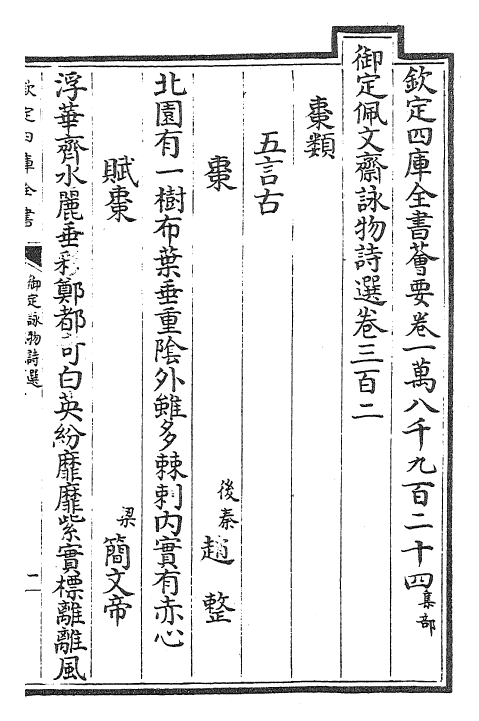 欽定四庫全書薈要卷一萬八千九百二十四 集部
御定佩文齋詠物詩選卷三百二
棗類
五言古
棗 後秦 趙整
北園有一樹布葉垂重陰外雖多棘刺内實有赤心
賦棗 梁 簡文帝
浮華齊水麗垂彩鄭都可白英紛靡靡紫實標離離風
欽定四庫全書
御定詠物詩選